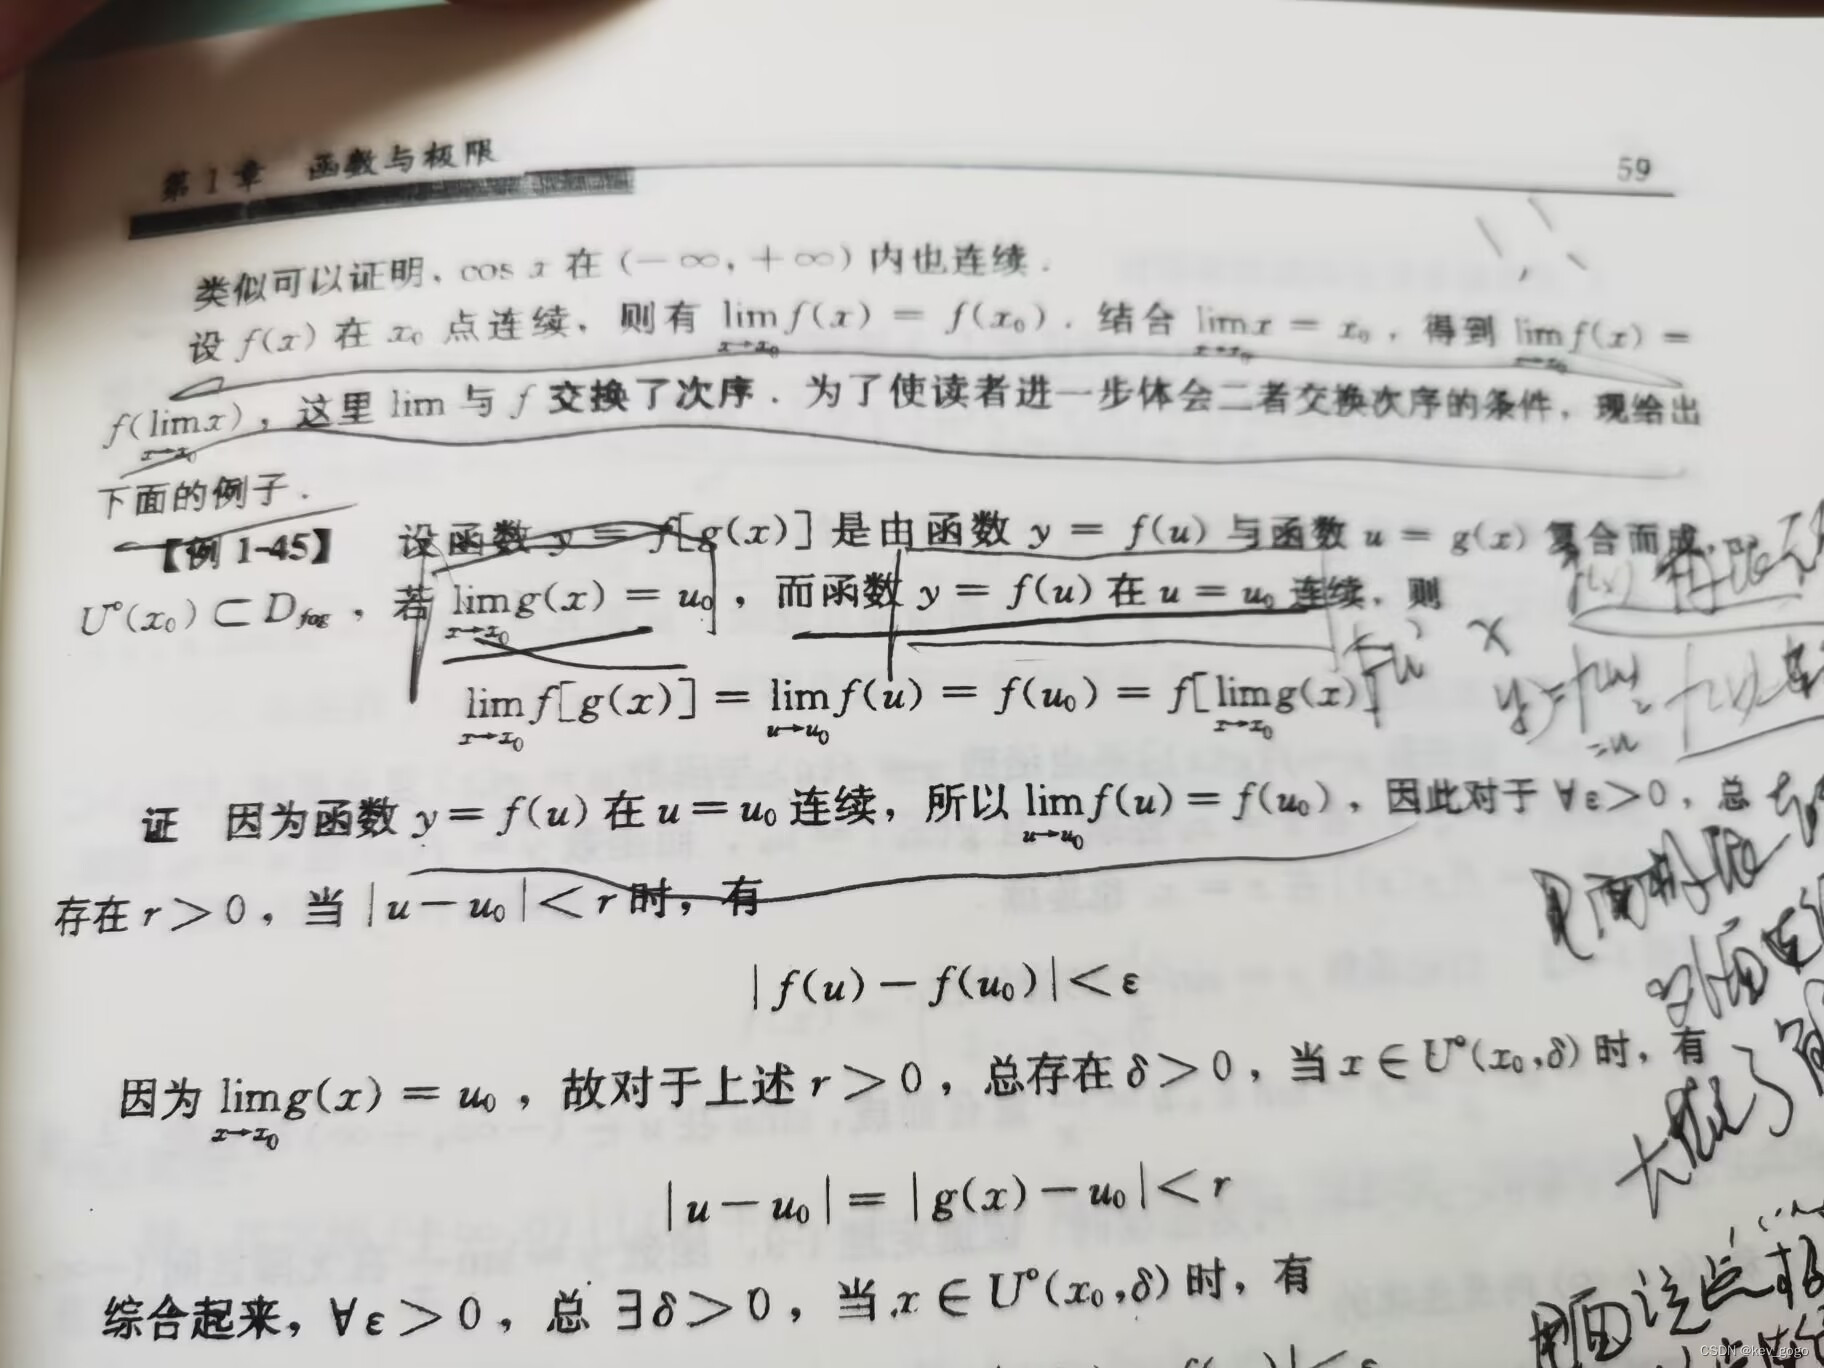 第1章 函数与极限
59
类似可以证明, cos x 在 (-∞, +∞) 内也连续.
设 f(x) 在 x₀ 点连续, 则有 lim f(x) = f(x₀). 结合 lim x = x₀, 得到 lim f(x) =
x→x₀ x→x₀ x→x₀
f(lim x), 这里 lim 与 f 交换了次序. 为了使读者进一步体会二者交换次序的条件, 现给出
x→x₀
下面的例子.
【例 1-45】 设函数 y = f[g(x)] 是由函数 y = f(u) 与函数 u = g(x) 复合而成
U°(x₀) ⊂ D_{f∘g}, 若 lim g(x) = u₀, 而函数 y = f(u) 在 u = u₀ 连续, 则
x→x₀
lim f[g(x)] = lim f(u) = f(u₀) = f[lim g(x)]
x→x₀ u→u₀ x→x₀
证 因为函数 y = f(u) 在 u = u₀ 连续, 所以 lim f(u) = f(u₀), 因此对于 ∀ε > 0, 总
u→u₀
存在 r > 0, 当 |u - u₀| < r 时, 有
|f(u) - f(u₀)| < ε
因为 lim g(x) = u₀, 故对于上述 r > 0, 总存在 δ > 0, 当 x ∈ U°(x₀, δ) 时, 有
x→x₀
|u - u₀| = |g(x) - u₀| < r
综合起来, ∀ε > 0, 总 ∃δ > 0, 当 x ∈ U°(x₀, δ) 时, 有
CSDN @kev_gogo